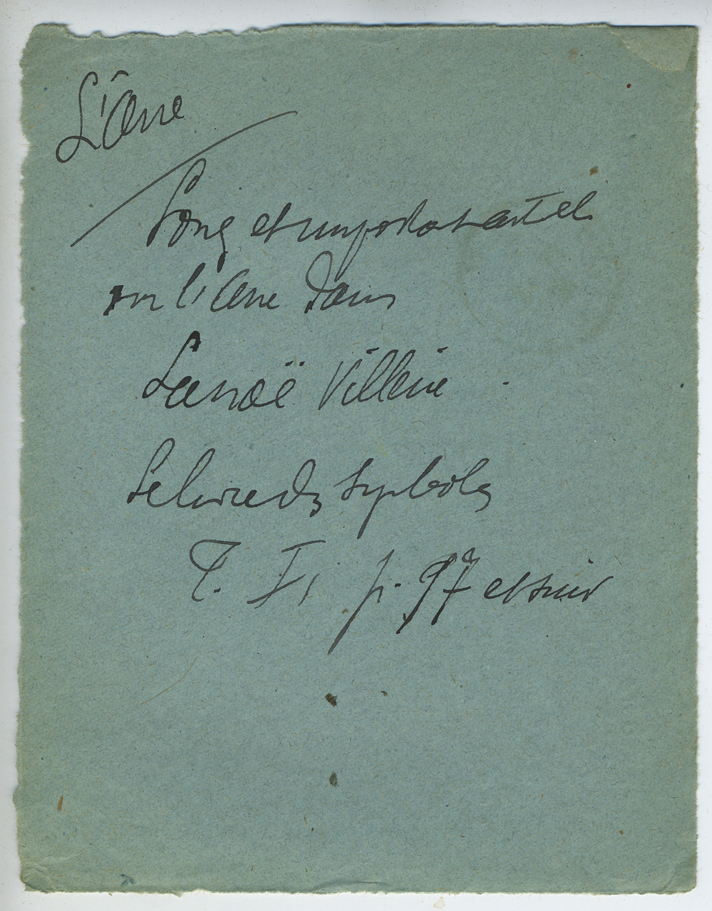 L'Âne
Long et important article
sur l'Âne dans
Lanoë Villène
Le livre des symboles
T. I, p. 97 et suiv